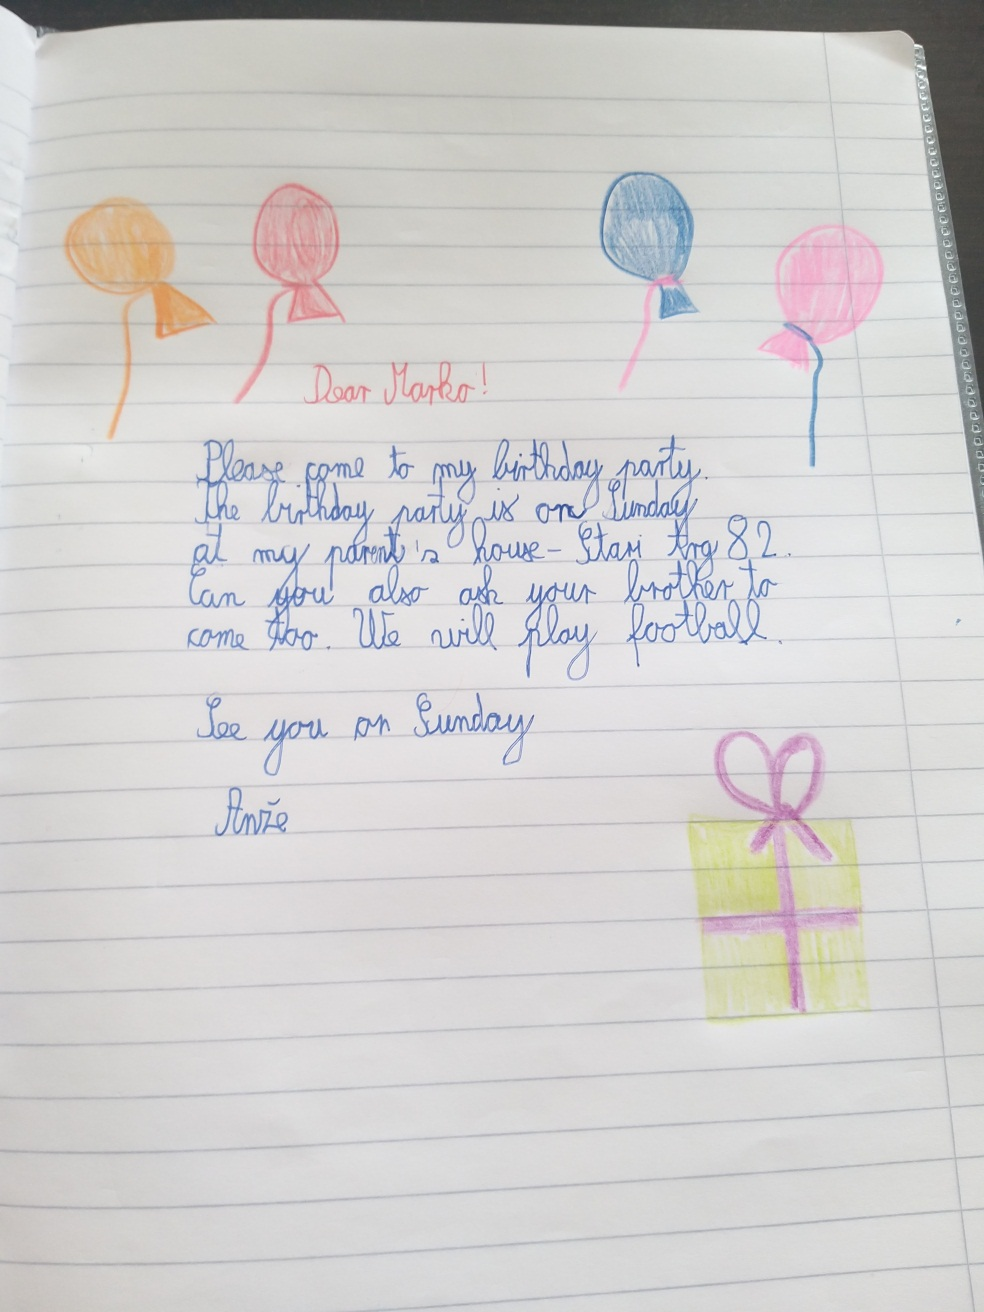 Dear Marko!
Please come to my birthday party.
The birthday party is on Sunday
at my parent's house - Stari trg 82.
Can you also ask your brother to
come too. We will play football.
See you on Sunday
Anže